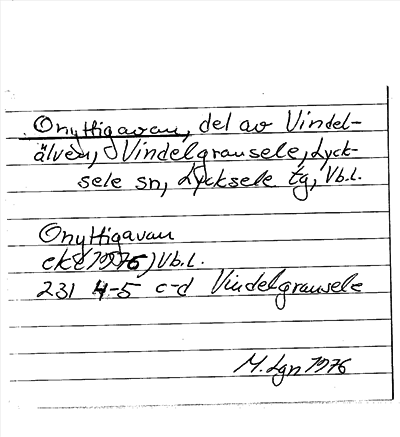 Onyttigavan, del av Vindel-
älven, Vindelgransele, Lyck-
sele sn, Lycksele tg, Vb.l.
Onyttigavan
ek (1975) Vb.l.
231 4-5 c-d Vindelgransele
M. Lgn 1976